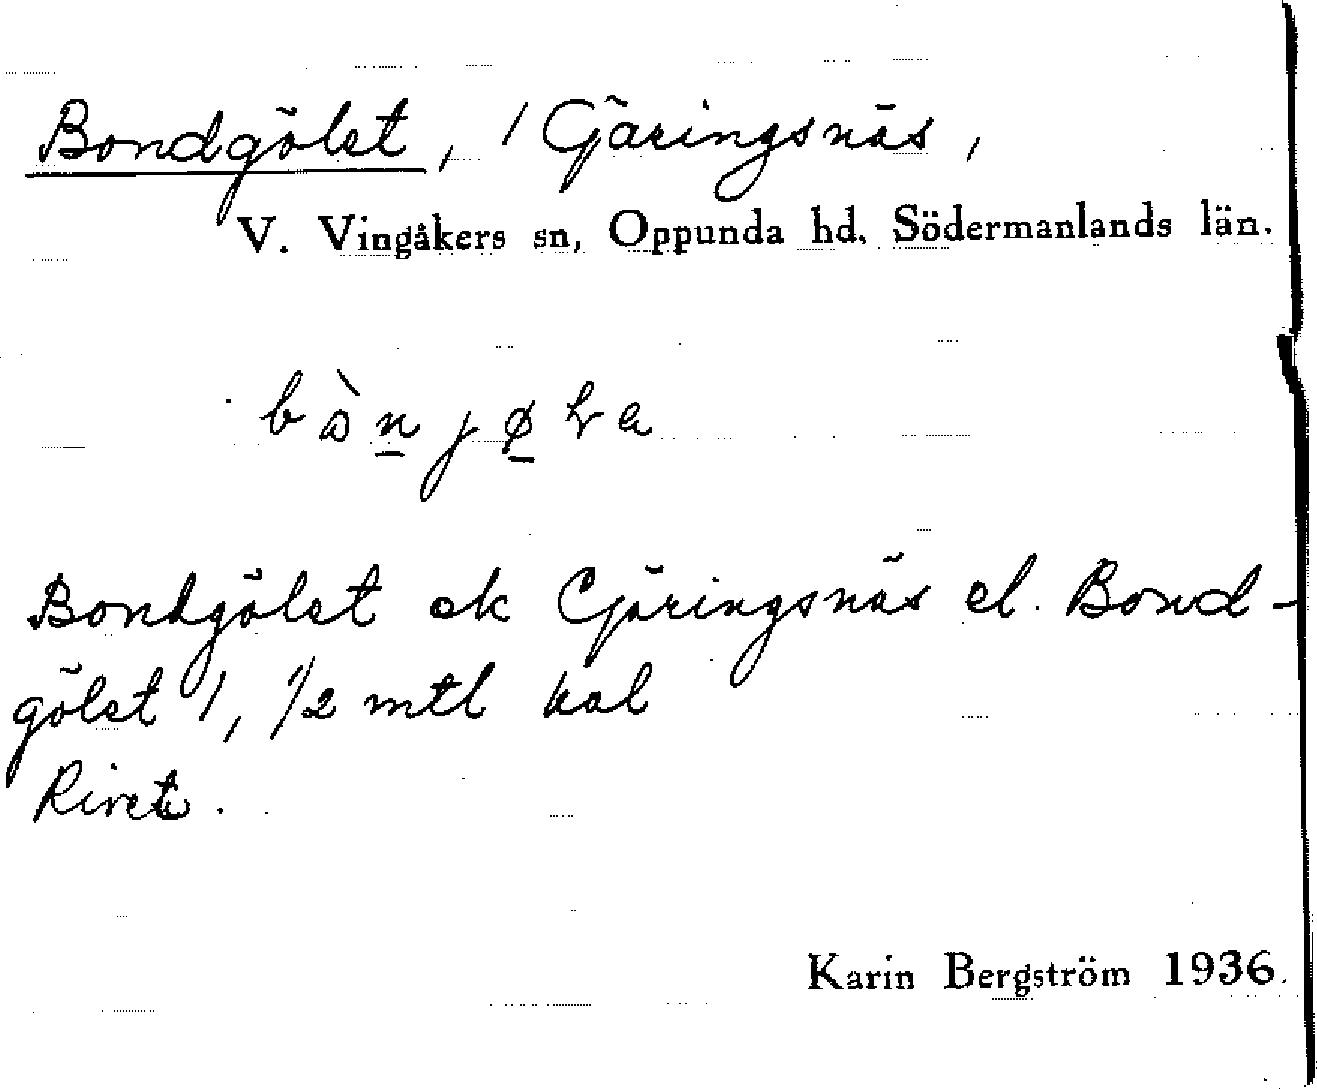 Bondgölet, / Gäringsnäs,
V. Vingåkers sn, Oppunda hd. Södermanlands län.
Bondgölet ek Gäringsnäs el. Bond-
gölet 1, 1/2 mtl kal
Rivet.
Karin Bergström 1936.